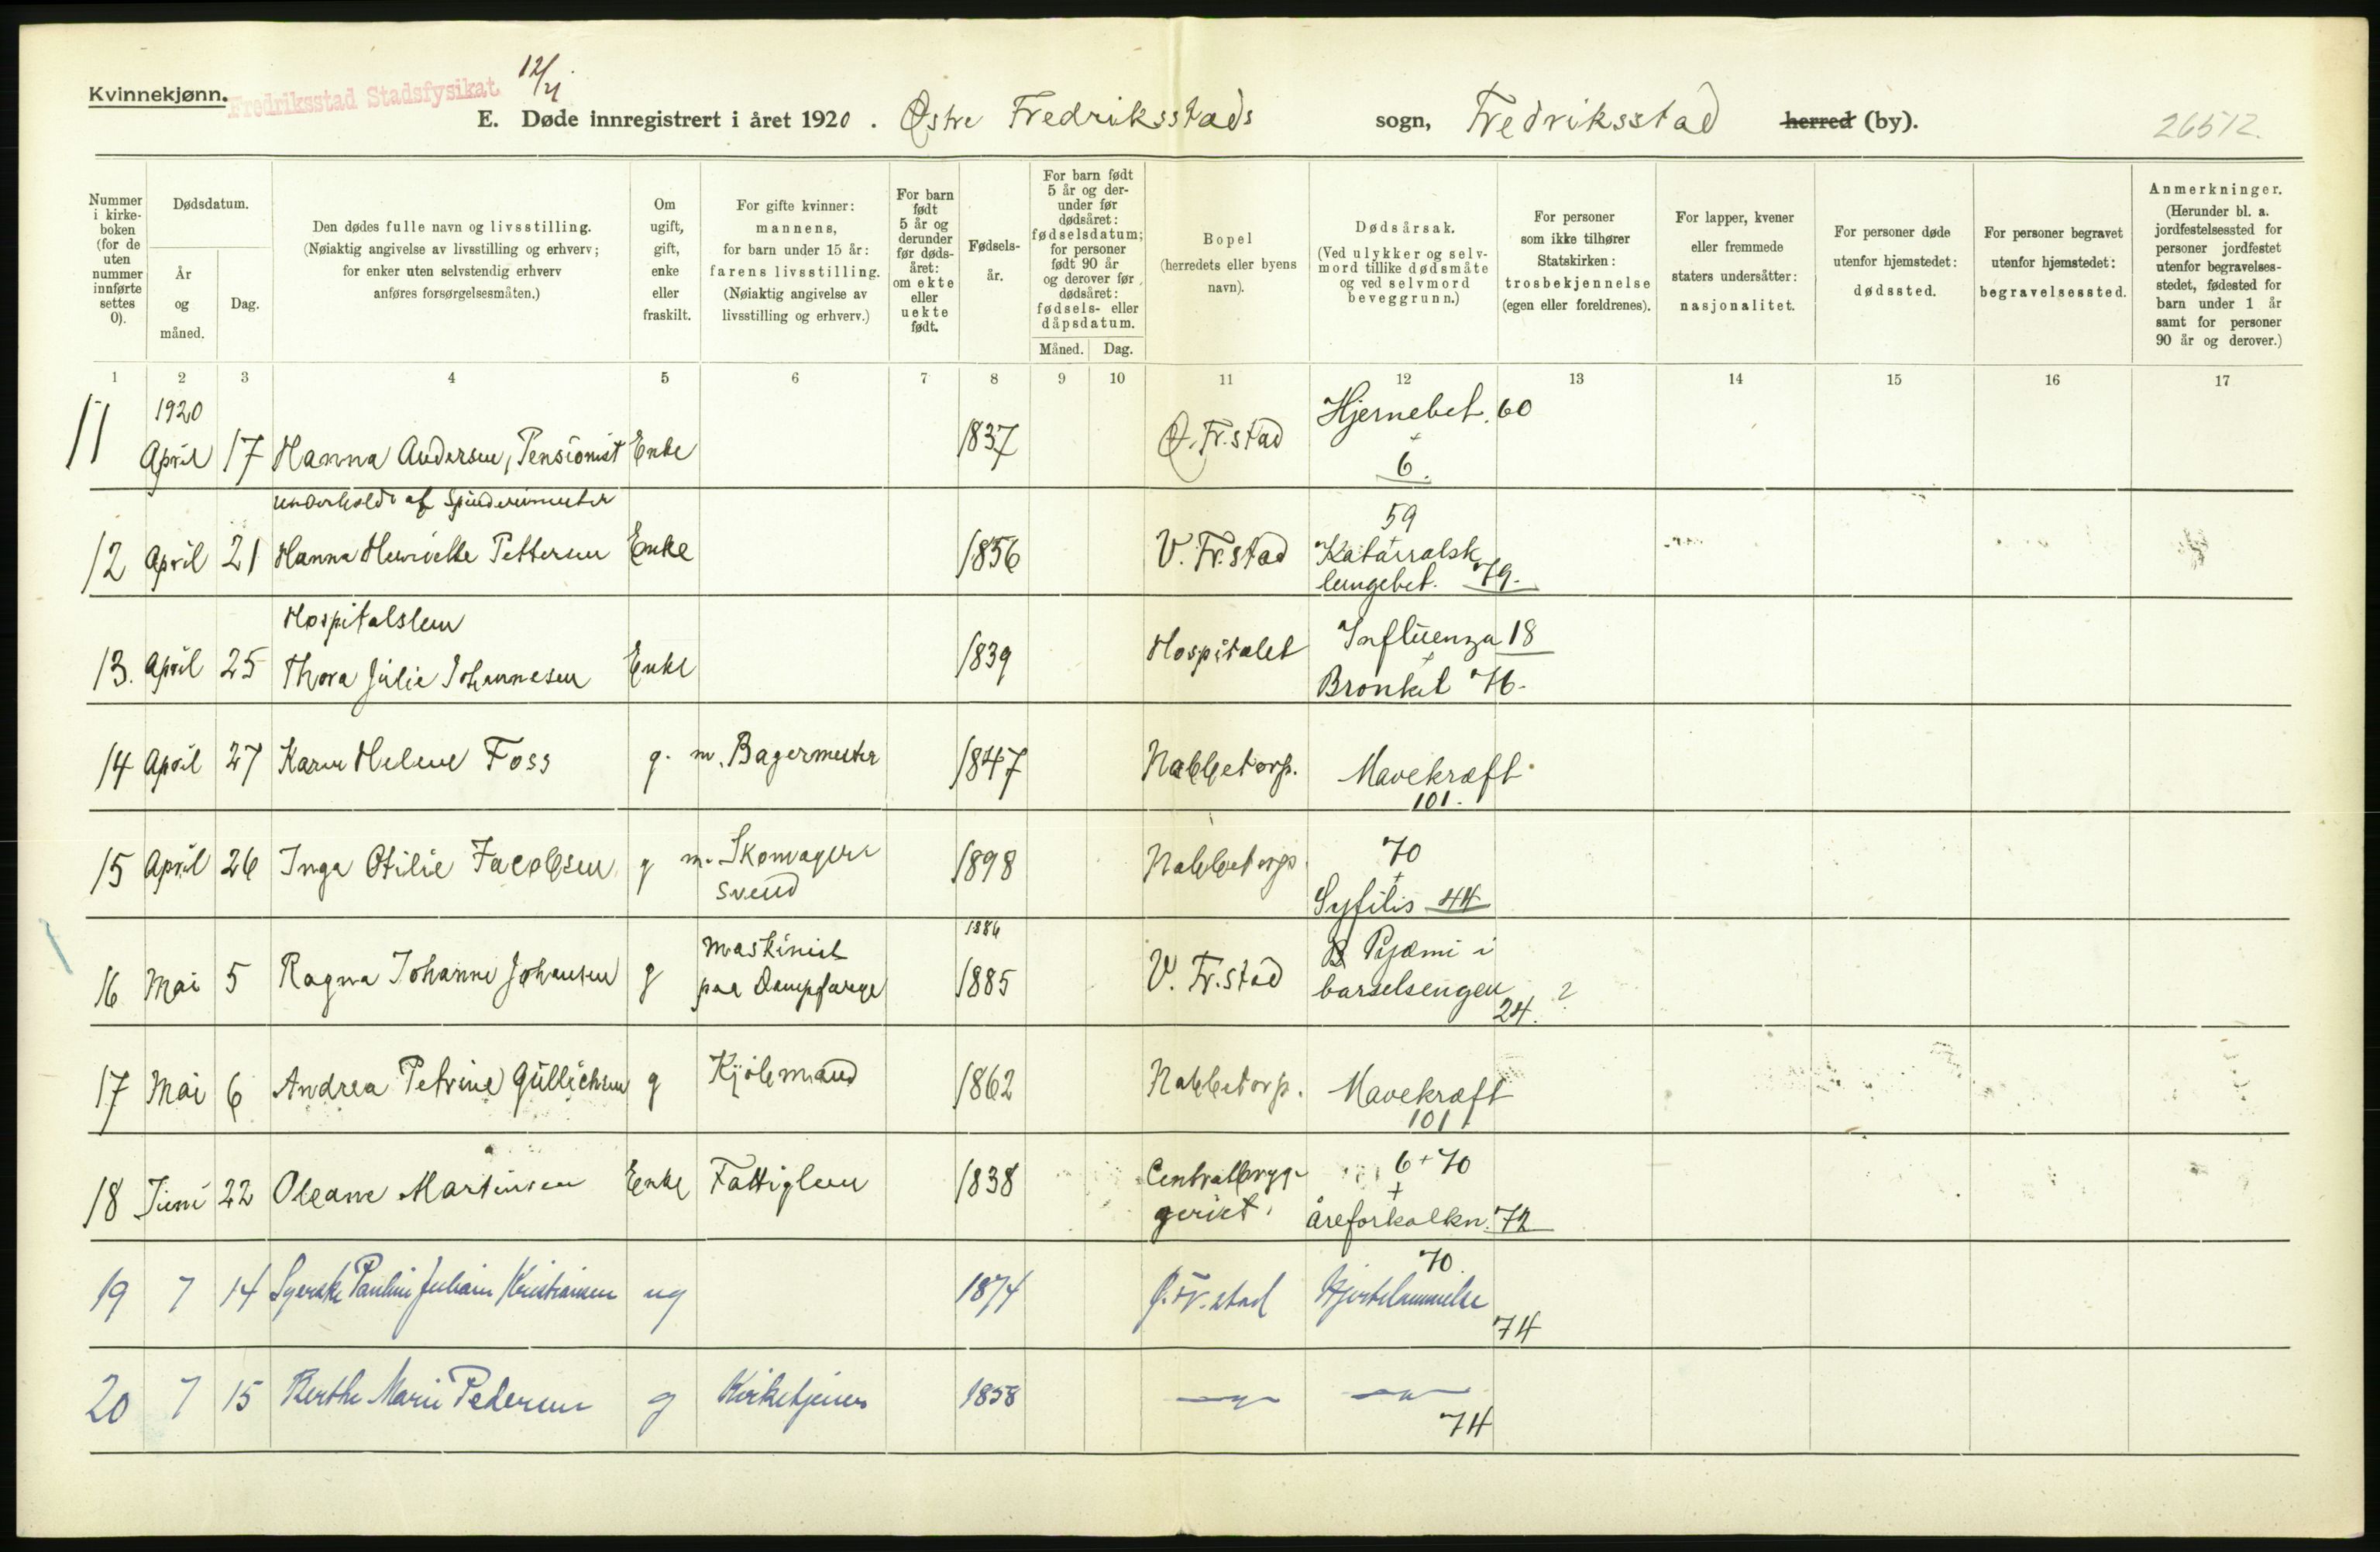 Kvinnekjønn.
Fredriksstad Stadsfysikat
12/
E. Døde innregistrert i året 1920. Østre Fredriksstads sogn, Fredriksstad herred (by).
26512.
Nummer i kirkeboken (for de uten nummer innførte settes 0).
Dødsdatum.
År og måned.
Dag.
Den dødes fulle navn og livsstilling.
(Nøiaktig angivelse av livsstilling og erhverv; for enker uten selvstendig erhverv anføres forsørgelsesmåten.)
Om ugift, gift, enke eller fraskilt.
For gifte kvinner: mannens, for barn under 15 år: farens livsstilling.
(Nøiaktig angivelse av livsstilling og erhverv.)
For barn født 5 år og derunder før dødsåret: om ekte eller uekte født.
Fødselsår.
For barn født 5 år og derunder før dødsåret: fødselsdatum; for personer født 90 år og derover før dødsåret: fødsels- eller dåpsdatum.
Måned. Dag.
Bopel (herredets eller byens navn).
Dødsårsak.
(Ved ulykker og selvmord tillike dødsmåte og ved selvmord beveggrunn.)
For personer som ikke tilhører Statskirken: trosbekjennelse (egen eller foreldrenes).
For lapper, kvener eller fremmede staters undersåtter: nasjonalitet.
For personer døde utenfor hjemstedet: dødssted.
For personer begravet utenfor hjemstedet: begravelsessted.
Anmerkninger.
(Herunder bl. a. jordfestelsessted for personer jordfestet utenfor begravelsesstedet, fødested for barn under 1 år samt for personer 90 år og derover.)
1 2 3 4 5 6 7 8 9 10 11 12 13 14 15 16 17
1920 Hjernebet. 60
11 April 17 Hanna Andersen, Pensionist Enke 1837 Ø. Fr.stad + 6.
underholdt af Spinderimester 59
12 April 21 Hanna Henriette Pettersen Enke 1856 V. Fr.stad Katarralsk
lungebet. 79.
Hospitalslem Influenza 18
13. April 25 Thora Julie Johannesen Enke 1839 Hospitalet +
Bronkit 76.
14 April 27 Karen Helene Foss g. m. Bagermester 1847 Nabbetorp. Mavekræft
101.
15 April 26 Inga Otilie Jacobsen g m. Skomager 1898 Nabbetorp. 70
svend + Syfilis 44
maskinist 1886 Pyæmi i
16 Mai 5 Ragna Johanne Johansen g paa Dampfærge 1885 V. Fr.stad barselsengen
24. ?
17 Mai 6 Andrea Petrine Gullichsen g Kjølemand 1862 Nabbetorp. Mavekræft
101
18 Juni 22 Oleane Martinsen Enke Fattiglem 1838 Centralbryg- 6+70
geriet. + åreforkalkn. 72
70.
19 7 14 Syerske Pauline Juliane Kristiansen ug 1874 Ø. Fr.stad Hjertelammelse
74
20 7 15 Berthe Marie Pedersen g Kirketjener 1858 —"— —"—
74